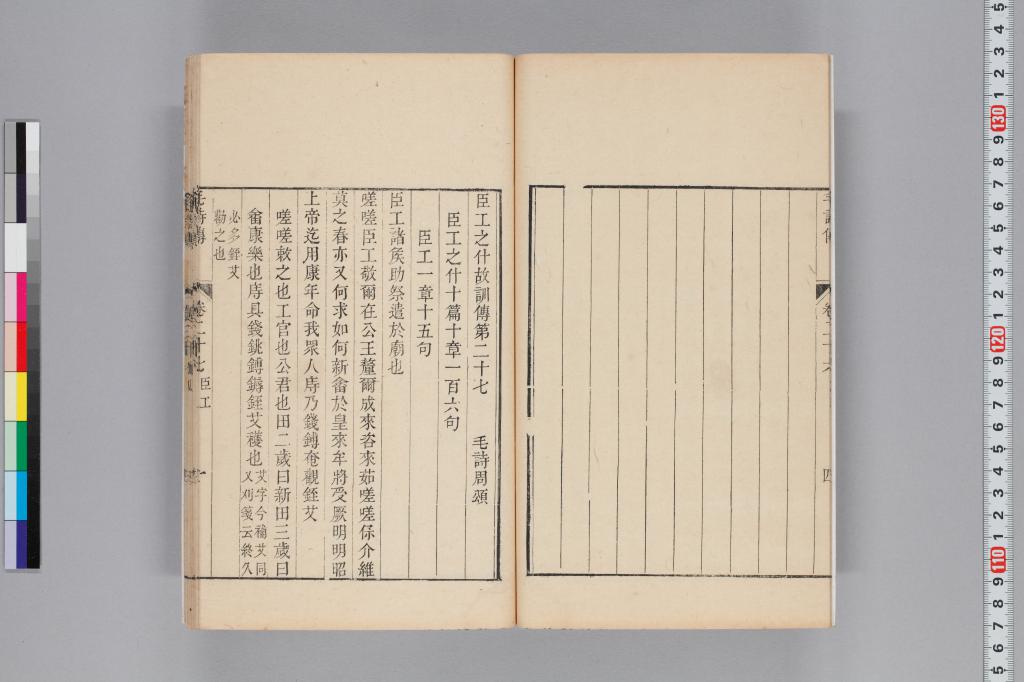 毛詩傳
卷二十六
四
臣工之什故訓傳第二十七 毛詩周頌
臣工之什十篇十章一百六句
臣工一章十五句
臣工諸矦助祭遣於廟也
嗟嗟臣工敬爾在公王釐爾成來咨來茹嗟嗟保介維
莫之春亦又何求如何新畬於皇來牟將受厥明明昭
上帝迄用康年命我眾人庤乃錢鎛奄觀銍艾
嗟嗟敕之也工官也公君也田二歲曰新田三歲曰
畬康樂也庤具錢銚鎛鎒銍艾穫也艾字今補艾同
又刈箋云終久
必多銍艾
勸之也
毛詩傳
卷二十七 臣工
一